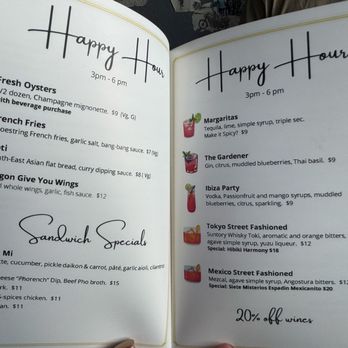 Happy Hour
3pm - 6 pm
Fresh Oysters
1/2 dozen, Champagne mignonette. $9 (Vg, G)
with beverage purchase
French Fries
Shoestring French fries, garlic salt, bang-bang sauce. $7
South-East Asian flat bread, curry dipping sauce. $8 (Vg)
gon Give You Wings
whole wings, garlic, fish sauce. $12
Sandwich Specials
Mi
cucumber, pickle daikon & carrot, pâté, garlic aioli, cilantro
"Phorench" Dip, Beef Pho broth. $15
$11
spices chicken. $11
$11
Happy Hour
3pm - 6 pm
Margaritas
Tequila, lime, simple syrup, triple sec.
Make it Spicy? $9
The Gardener
Gin, citrus, muddled blueberries, Thai basil. $9
Ibiza Party
Vodka, Passionfruit and mango syrups, muddled
blueberries, citrus, sparkling. $9
Tokyo Street Fashioned
Suntory Whisky Toki, aromatic and orange bitters,
agave simple syrup, yuzu liqueur. $12
Special: Hibiki Harmony $18
Mexico Street Fashioned
Mezcal, agave simple syrup, Angostura bitters. $12
Special: Siete Misterios Espadin Mexicanito $20
20% off wines